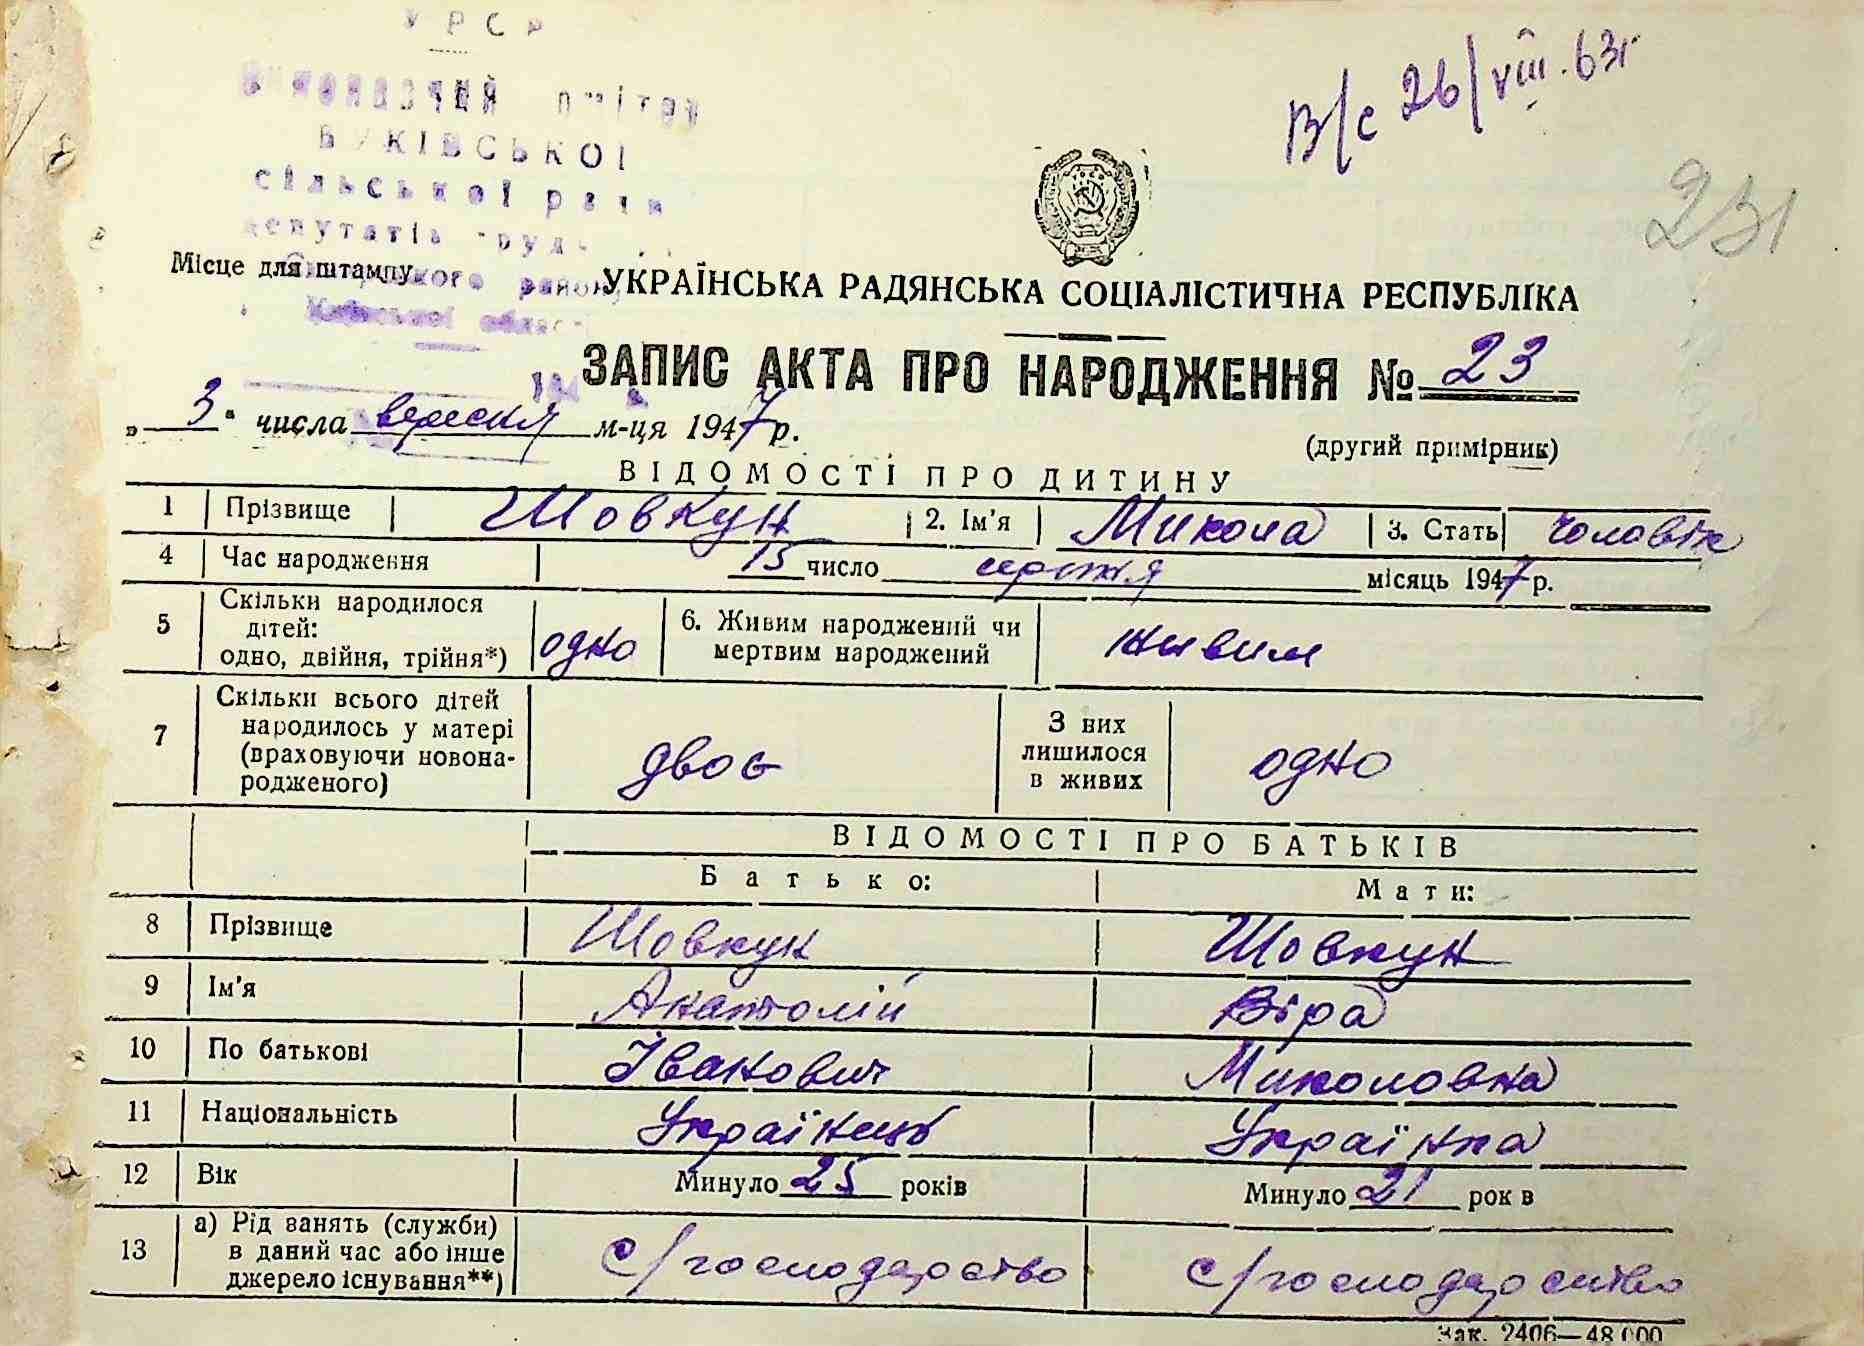 УРСР
Виконавчий комітет
БУКІВСЬКОЇ
сільської ради
депутатів труд
В/с 26/VIII.63г
231
Місце для штампу
району
Київської област
УКРАЇНСЬКА РАДЯНСЬКА СОЦІАЛІСТИЧНА РЕСПУБЛІКА
ЗАПИС АКТА ПРО НАРОДЖЕННЯ № 23
„ 3 “ числа вересня м-ця 1947 р.
(другий примірник)
ВІДОМОСТІ ПРО ДИТИНУ
1 Прізвище Шовкун 2. Ім'я Микола 3. Стать чоловік
4 Час народження 15 число серпня місяць 1947 р.
5 Скільки народилося дітей: одно, двійня, трійня*) одно 6. Живим народжений чи мертвим народжений живим
7 Скільки всього дітей народилось у матері (враховуючи новонародженого) двоє З них лишилося в живих одно
ВІДОМОСТІ ПРО БАТЬКІВ
Батько: Мати:
8 Прізвище Шовкун Шовкун
9 Ім'я Анатолій Віра
10 По батькові Іванович Миколовна
11 Національність Українець Українка
12 Вік Минуло 25 років Минуло 21 рок в
13 а) Рід занять (служби) в даний час або інше джерело існування**) с/господарство с/господарство
Зак. 2406—48.000